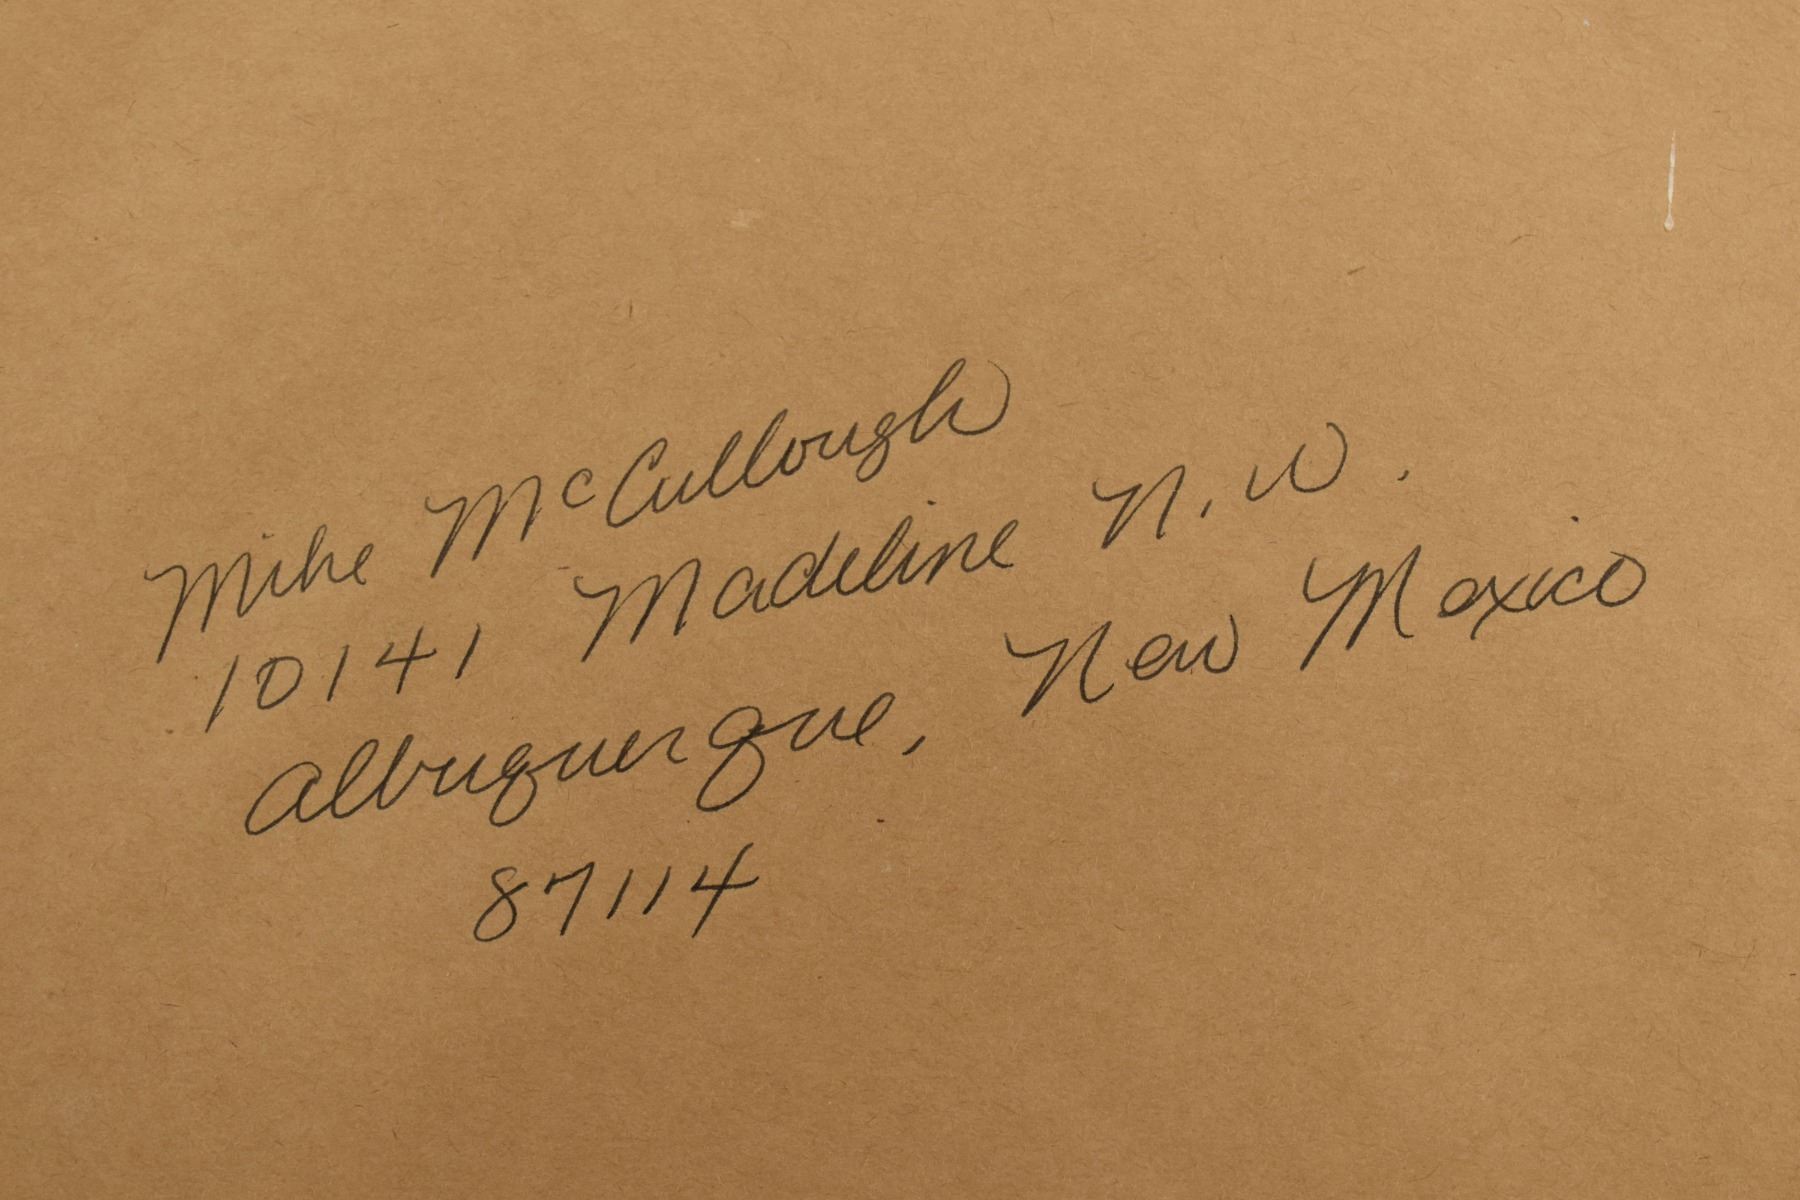 Mike McCullough
10141 Madeline N.W.
Albuquerque, New Mexico
87114